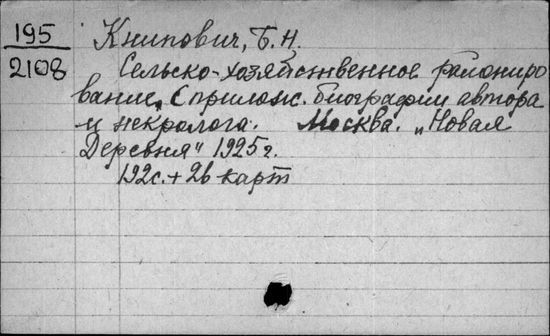 195
2108
Книпович, Б. Н.
Сельско-хозяйственное райониро
вание, С прилож. биографии автора
и некролога. Москва. „Новая
Деревня" 1925 г.
192 с. + 26 карт